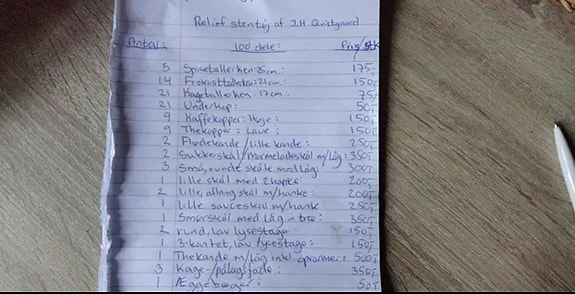 Relief stentøj af J.H. Quistgaard
Antal: 100 dele: Pris/stk
5 Spisetallerken 25cm.: 175,-
14 Frokosttallerken 21cm.: 150,-
21 Kagetallerken: 17cm.: 75,-
21 Underkop: 50,-
9 Kaffekopper: Høje: 150,-
9 Thekopper: Lave: 150,-
2 Flødekande/lille kande: 250,-
2 Sukkerskål/Marmeladeskål m/låg: 350,-
3 Små, runde skåle med låg: 300,-
1 lille skål med 2 hanke: 200,-
2 lille, aflang skål m/hanke: 200,-
1 lille sauceskål m/hank: 250,-
1 Smørskål med låg i træ: 350,-
2 rund, lav lysestage: 150,-
1 3-kantet, lav lysestage: 150,-
1 Thekande m/låg inkl. opvarmer: 500,-
3 Kage-/pålægsfade: 350,-
1 Æggebæger: 50,-